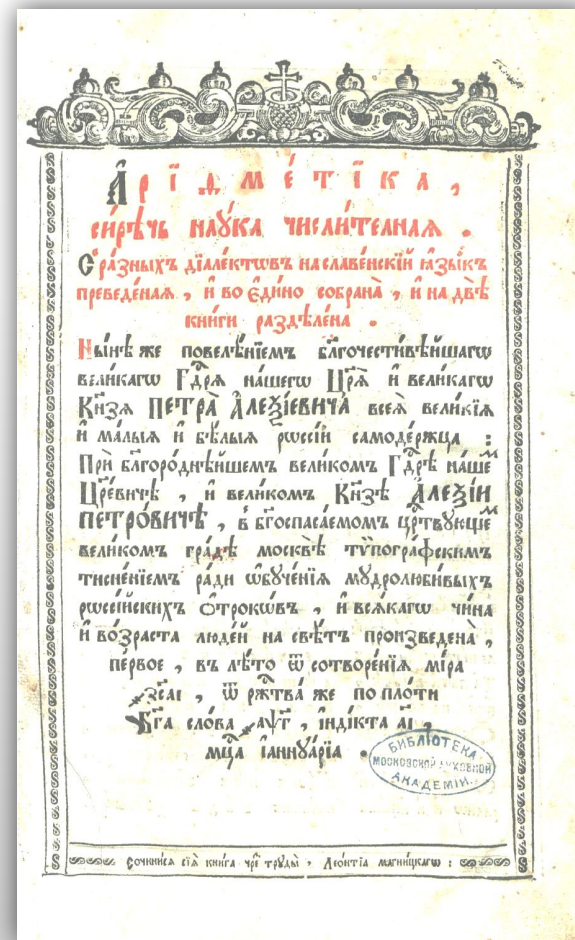 А҆рїѳме́тїка,
си́рѣчь наѹ́ка числи́телная.
С̾ ра́зныхъ дїале́ктѡвъ на славе́нскїй ꙗ҆зы́къ
преведе́ная, и҆ во є҆ди́но собрана̀, и҆ на двѣ̀
кни́ги раздѣле́на.
Ны́нѣ же повелѣ́нїемъ бл҃гочести́вѣйшагѡ
вели́кагѡ Гдⷭ҇рѧ на́шегѡ Цр҃ѧ̀ и҆ вели́кагѡ
Кн҃зѧ ПЕТРА̀ А҆ЛЕѮІ́ЕВИЧА всеѧ̀ вели́кїѧ
и҆ ма́лыѧ и҆ бѣ́лыѧ рѡссі́и самоде́ржца :
Прѝ бл҃горо́днѣйшемъ вели́комъ Гдⷭ҇рѣ на́шеⷨ
Цр҃е́вичѣ, и҆ вели́комъ Кн҃зѣ А҆ЛЕѮІ́И
ПЕТРО́ВИЧѢ, в̾ бг҃оспаса́емомъ црⷭ҇твꙋющеⷨ
вели́комъ гра́дѣ москвѣ̀ тѷпогра́фскимъ
тисне́нїемъ ради ѡ҆бꙋче́нїѧ мꙋдролюби́выхъ
рѡссі́йскихъ ѻ҆́трокѡвъ, и҆ всѧ́кагѡ чи́на
и҆ во́зраста люде́й на свѣ́тъ произведена̀,
пе́рвое, въ лѣ́то ѿ сотворе́нїѧ мі́ра
҂зсаі, ѿ рж҃тва́ же по пло́ти
Бг҃а сло́ва ҂аѱг҃, і҆нді́кта аі҃,
мцⷭ҇а і҆аннꙋа́рїа.
БИБЛІОТЕКА
МОСКОВСКОЙ ДУХОВНОЙ
АКАДЕМІИ.
Сочини́сѧ сїѧ̀ кни́га чреⷥ трꙋды̀ Лео́нтїа магни́цкагѡ :